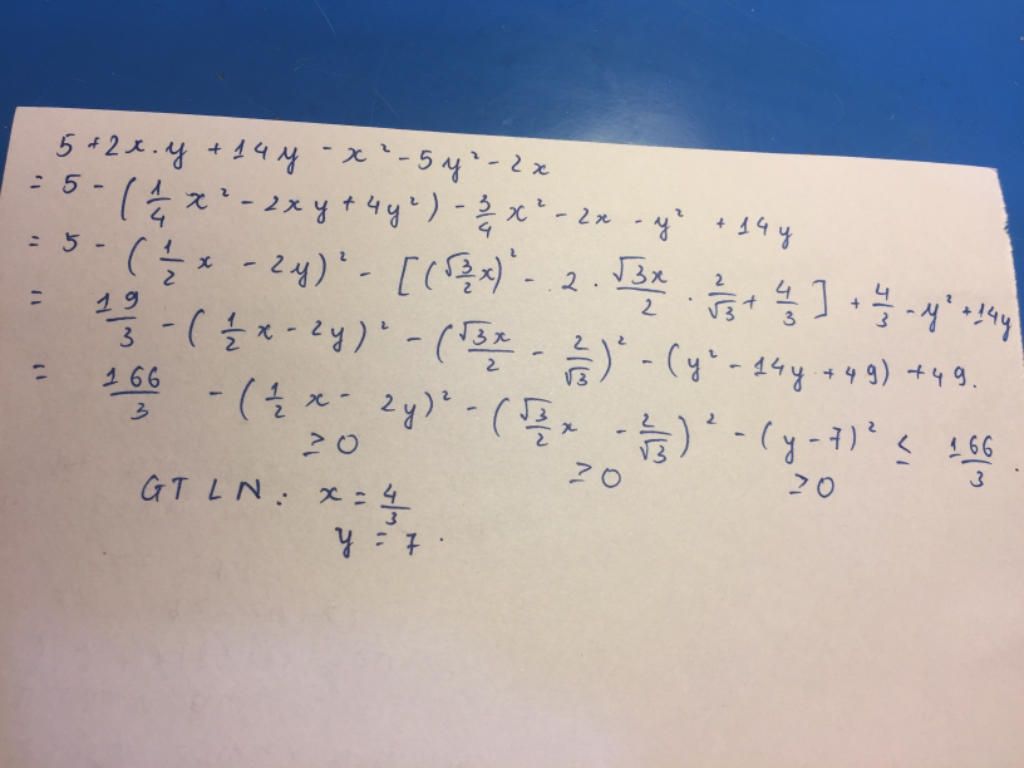 5 + 2x.y + 14y - x² - 5y² - 2x
= 5 - (1/4 x² - 2xy + 4y²) - 3/4 x² - 2x - y² + 14y
= 5 - (1/2 x - 2y)² - [(√3/2 x)² - 2 . √3x/2 . 2/√3 + 4/3] + 4/3 - y² + 14y
= 19/3 - (1/2 x - 2y)² - (√3x/2 - 2/√3)² - (y² - 14y + 49) + 49.
= 166/3 - (1/2 x - 2y)² - (√3/2 x - 2/√3)² - (y - 7)² ≤ 166/3 .
≥ 0 ≥ 0 ≥ 0
GTLN : x = 4/3
y = 7 .